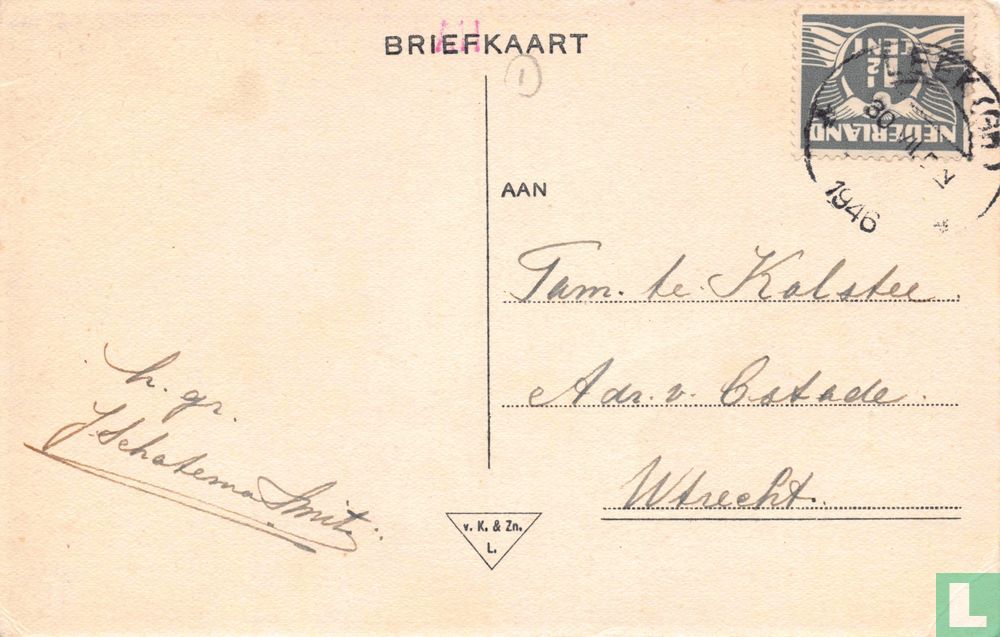 BRIEFKAART
1
NEDERLAND
1½
CENT
LEEK (GR)
30 VII
1946
AAN
Fam. te Kolstee
Adr. v. Ostade.
Utrecht.
h. gr.
J Schatema Smit
v. K. & Zn.
L.
L